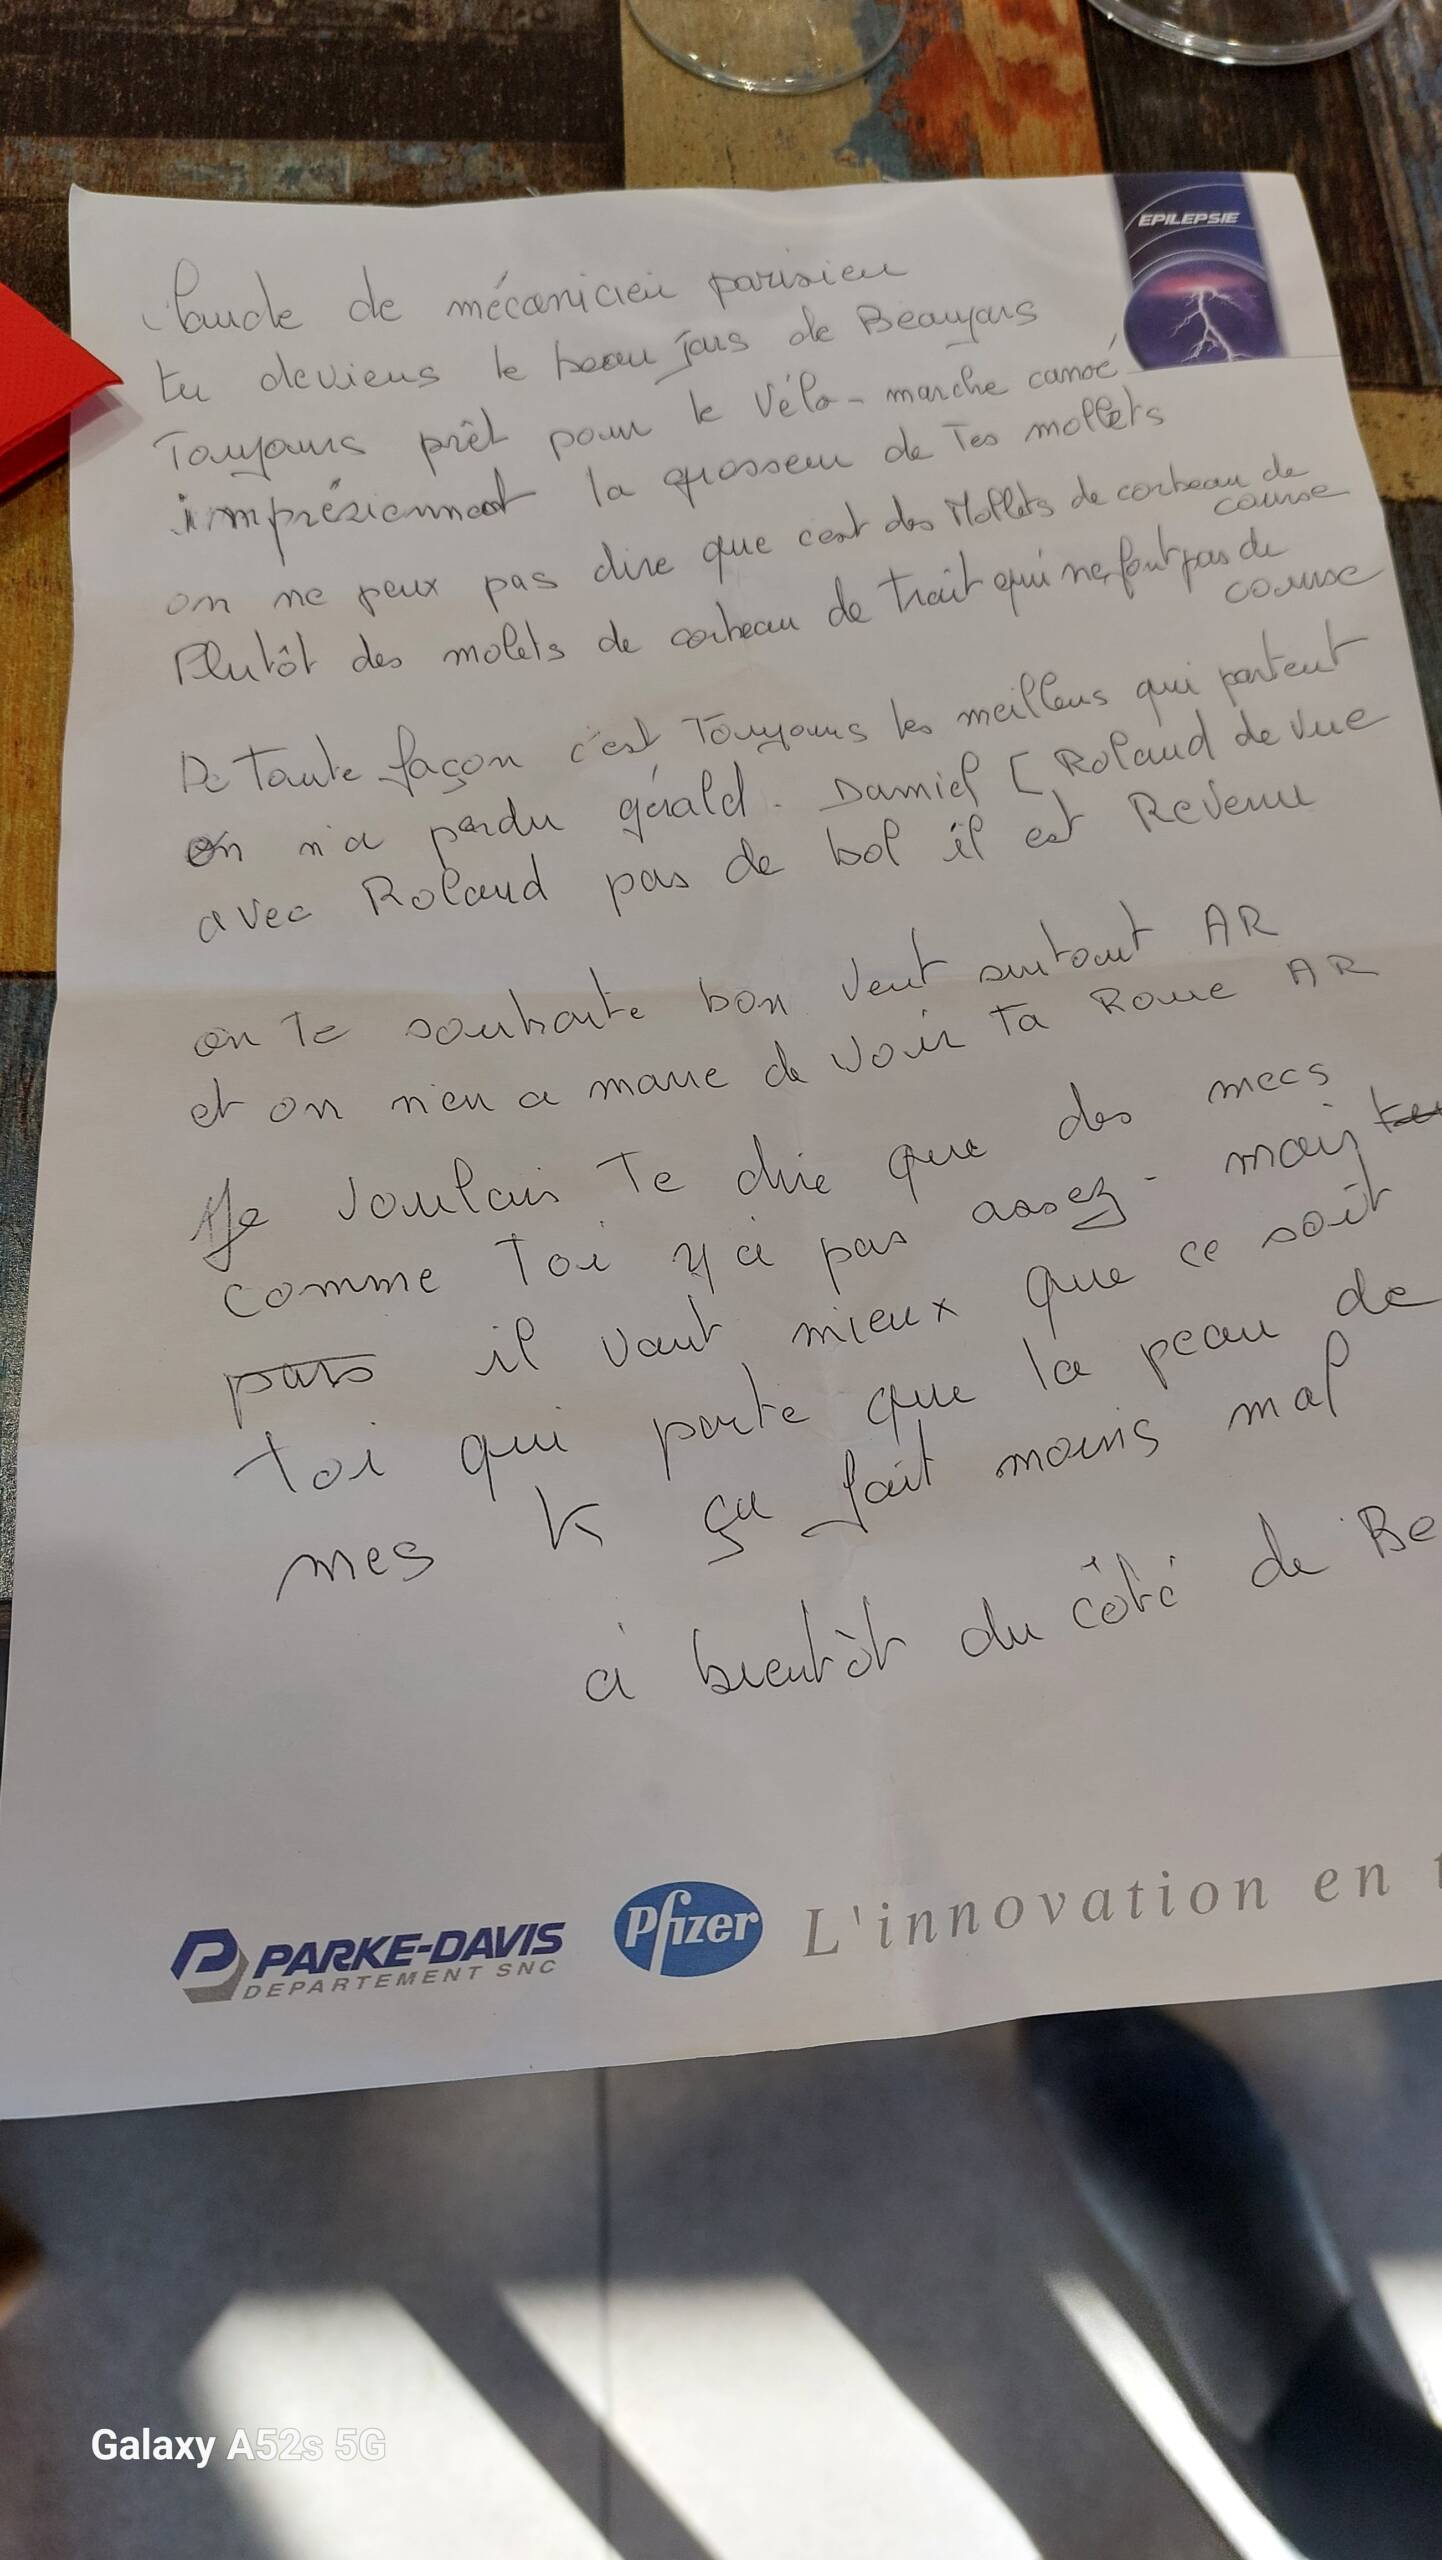 EPILEPSIE
Claude de mécanicien parisien
tu deviens le beau jars de Beaujars
Toujours prêt pour le Vélo - marche canoé
impréssiennent la grosseur de Tes mollets
on ne peux pas dire que c'est des Mollets de corbeau de course
Plutôt des molets de corbeau de trait qui ne font pas de course
De toute façon c'est Toujours les meilleurs qui partent
On n'a perdu gérald - Daniel [ Roland de vue
avec Roland pas de bol il est Revenu
on Te souhaite bon Vent surtout AR
et on n'en a marre de voir ta Roue AR
Je Voulais Te dire que des mecs
comme Toi y a pas assez - mais
il vaut mieux que ce soit
toi qui parte que la peau de
mes K ça fait moins mal
à bientôt du côté de Be
PARKE-DAVIS
DEPARTEMENT SNC
Pfizer
L'innovation en t
Galaxy A52s 5G